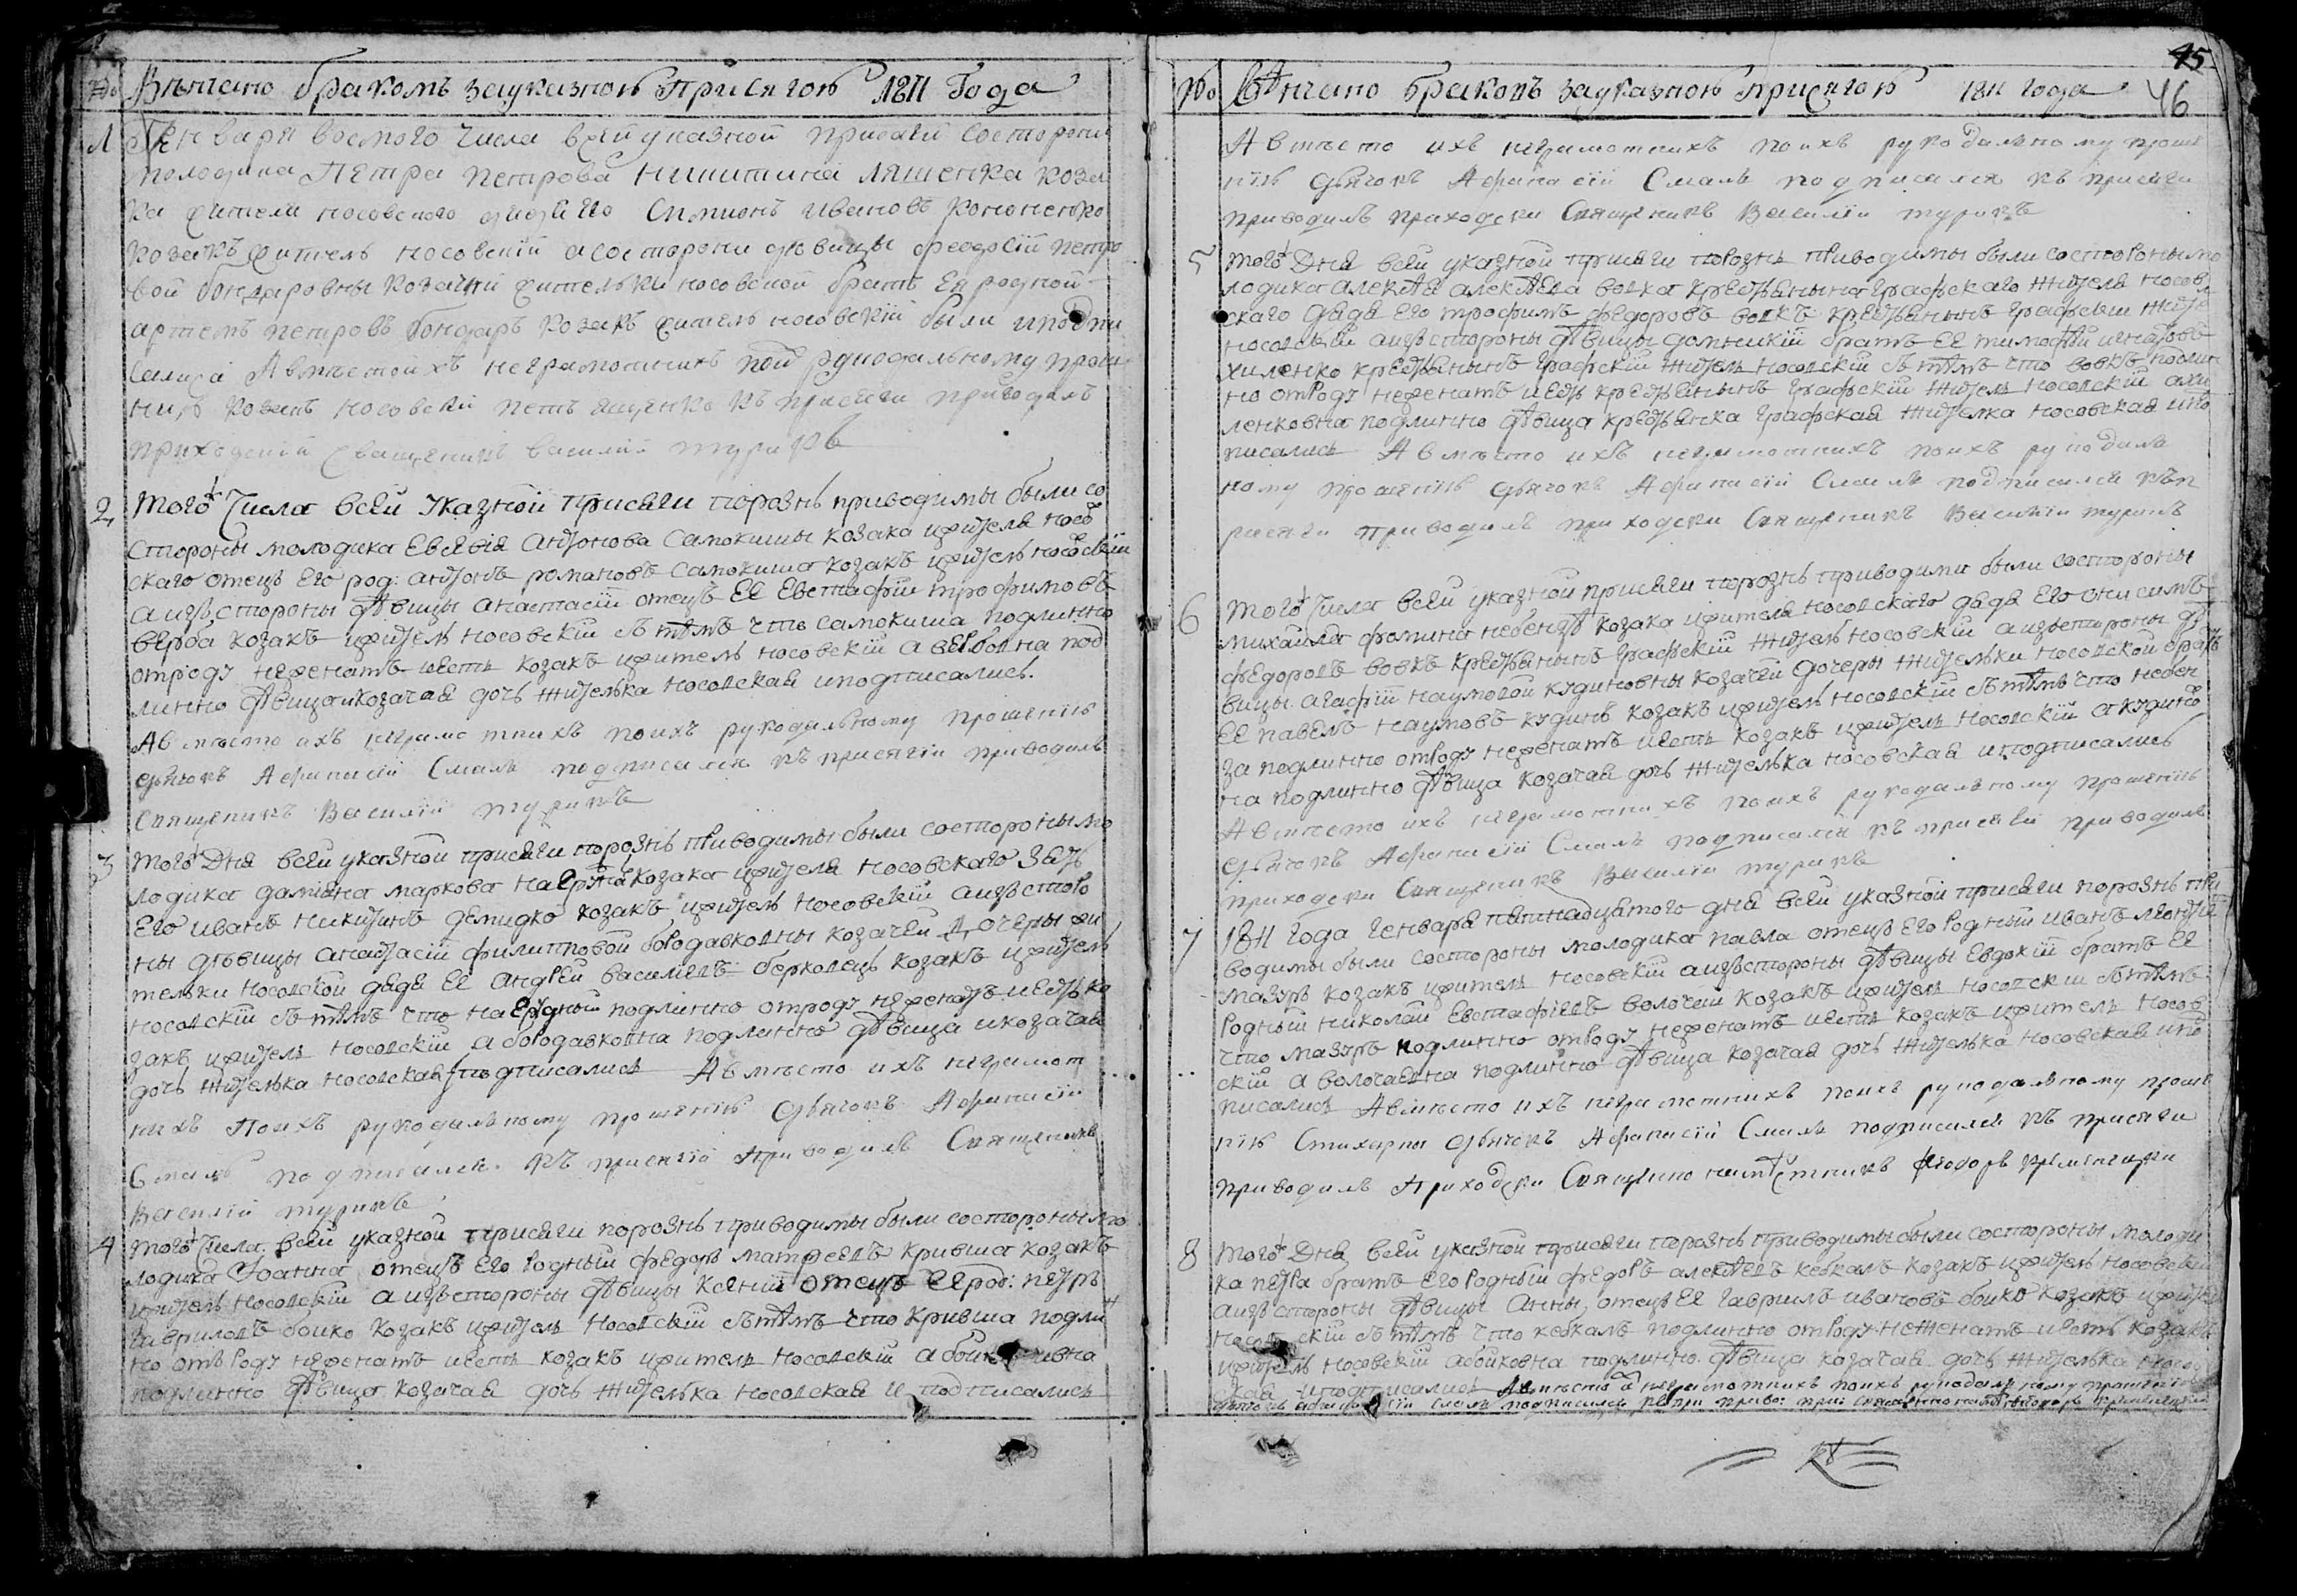 № Вѣнчано бракомъ зауказною присягою 1811 Года
1 Генваря восмого числа в сей указной присяги состороны
молодика Петра Петрова Никитина Ляшенка коза
ка жителя носовского дядя его Симионъ Ивановъ Кононенко
козакъ житель носовскій а состорони дѣвицы Феодосій Петро
вой бондаровны козачей жительки носовской братъ Ея родной
артемъ петровъ бондаръ козакъ житель носовскій были и подпи
салися Авместо ихъ неграмотнихъ по их рукодальному проше
нию козакъ носовскій къ присяги приводилъ
приходскій священникъ василій турикъ
2 Того Числа всей Указной присяги порознь приводимы были со
стороны молодика Евсевія Антонова Самокишы козака жителя носо
вскаго отецъ Его род: антонъ романовъ Самокиша козакъ житель носовскій
аизъ стороны дѣвицы анастасіи отецъ Ее Евстафій трофимовъ
верба козакъ житель носовскій сътѣмъ что самокиша подлинно
отроду неженатъ иесть козакъ житель носовскій а вербовна под
линно дѣвица козачая дочь жителька носовская иподписались.
Авместо ихъ неграмотнихъ поихъ рукодальному прошенію
дьячокъ Афанасій Смаль подписался къ присягіи приводилъ
священикъ Василій турикъ
3 Того Дня всей указной присяги порознь приводимы были состороны мо
лодика даміана маркова козака жителя носовскаго зять
Его иванъ никитинъ демидко козакъ житель носовскій аизъ сторо
ны дѣвицы анастасіи филиповой бородавковны козачей дочеры жи
тельки носовской дядя Ее андрей василіевъ берковецъ козакъ житель
носовскій сътѣмъ что подлинно отроду неженатъ иесть ко
закъ житель носовскій а бородавковна подлинно дѣвица икозачая
дочь жителька носовская подписались Авместо ихъ неграмот
нихъ Поихъ рукодальному прошенію дьячокъ Афанасій
Смаль подписался къ присягіи приводилъ Священикъ
Василій турикъ
4 Того Числа всей указной присяги порознь приводимы были состороны мо
лодика Іоанна отецъ Его родный федоръ матфеевъ кривша козакъ
житель носовскій аизъ стороны дѣвицы Ксеніи отецъ Ее род: петръ
гавриловъ бойко козакъ житель носовскій сътѣмъ что кривша подлин
но отъ роду неженатъ иесть козакъ житель носовскій а бойковна
подлинно дѣвица козачая дочь жителька носовская и подписались
45
№ Вѣнчано бракомъ зауказною присягою 1811 года 46
Авместо ихъ неграмотнихъ поихъ рукодальному проше
нію дьячокъ Афанасій Смаль подписался къ присяги
приводилъ приходски Священикъ Василій турикъ
5 Того Дня всей указной присяги порознь приводимы были состороны мо
лодика алексѣя алексѣева вовка крестьянина графскаго жителя носов
скаго дядя Его трофимъ федоровъ вовкъ крестьянинъ графскій житель
носовскій аизъ стороны дѣвицы домникіи братъ Ее тимофѣй игнатовъ
хиленко крестьянинъ графскій житель носовскій сътѣмъ что вовкъ подлин
но отроду неженатъ иесть крестьянинъ графскій житель носовскій ахи
ленковна подлинно дѣвица крестьянка графская жителка носовская ипо
писались Авместо ихъ неграмотнихъ поихъ рукодаль
ному прошенію дьячокъ Афанасій Смаль подписался къ п
рисяги приводилъ приходски Священикъ Василій турикъ
6 Того Числа всей указной присяги порознь приводими были состороны
михаила фомина козака жителя носовскаго дядя Его онисимъ
федоровъ вовкъ крестьянинъ графскій житель носовскій аизъ стороны дѣ
вицы агафіи наумовой кудиновны козачей дочеры жительки носовской братъ
Ее павелъ наумовъ кудинъ козакъ житель носовскій сътѣмъ что
за подлинно отроду неженатъ иесть козакъ житель носовскій а кудинов
на подлинно дѣвица козачая дочь жителька носовская иподписались
Авместо ихъ неграмотнихъ поихъ рукодальному прошенію
дьячокъ Афанасій Смаль подписался къ присяги приводилъ
приходски Священикъ Василій турикъ
7 1811 года генваря пятнадцатого дня всей указной присяги порознь при
водимы были состороны молодика павла отецъ Его родный иванъ
мазуръ козакъ житель носовскій аизъ стороны дѣвицы Евдокіи братъ Ее
родный николай Евстафіевъ волочай козакъ житель носовскій сътѣмъ
что мазуръ подлинно отроду неженатъ иесть козакъ житель носов
скій а волочаевна подлинно дѣвица козачая дочь жителька носовская ипо
писались Авместо ихъ неграмотнихъ поихъ рукодальному проше
нію Стихарны дьячокъ Афанасій Смаль подписался къ присяги
приводилъ Приходски Священно намѣстникъ феодоръ
8 Того Дня всей указной присяги порознь приводимы были состороны молоди
ка петра братъ Его родный федоръ алексѣевъ кебкалъ козакъ житель носовскій
аизъ стороны дѣвицы Анны отецъ Ее гаврилъ ивановъ бойко козакъ житель
носовскій сътѣмъ что кебкалъ подлинно отроду неженатъ иесть козакъ
житель носовскій абойковна подлинно дѣвица козачая дочь жителька носов
ская иподписались Авместо неграмотнихъ поихъ рукодальному прошенію
дьячокъ афанасій смаль подписался